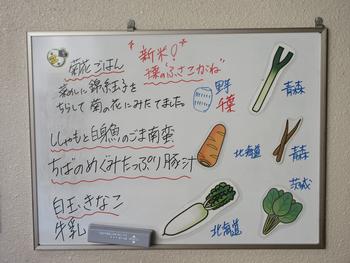 *新米! *
千葉の"ふさこがね"
菊花ごはん
菜めしに錦紅子を
ちらして菊の花にみたてました。
ししゃもと白身魚のごま南蛮
ちばのめぐみたっぷり豚汁
白玉きなこ
牛乳
野
千葉
青森
北海道
青森
北海道
茨城